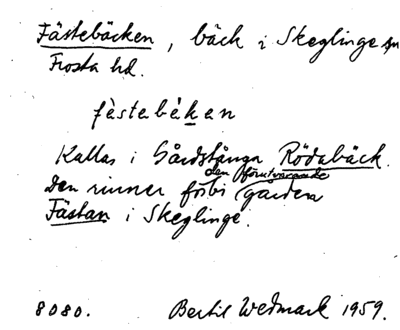 Fästebäcken, bäck i Skeglinge sn
Frosta hd.
fèstebékən
Kallas i Gårdstånga Rödabäck.
Den rinner förbi den förutvarande gården
Fästan i Skeglinge.
8080. Bertil Wedmark 1959.